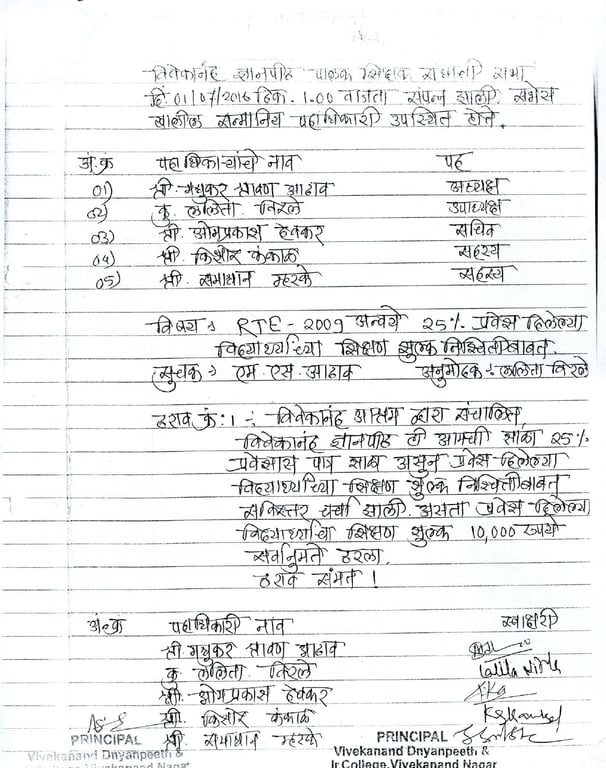 विवेकानंद ज्ञानपीठ पालक शिक्षक संघाची सभा
दि. 01/07/2016 ठिक. 1.00 वाजता संपन्न झाली. सभेस
खालील सन्मानिय पदाधिकारी उपस्थित होते.
अं.क्रं पदाधिकाऱ्यांचे नाव पद
01) श्री. मधुकर श्रावण आढाव अध्यक्ष
02) कु. ललिता विरले उपाध्यक्ष
03) श्री. ओमप्रकाश देवकर सचिव
04) श्री. किशोर कंकाळ सदस्य
05) श्री. समाधान म्हस्के सदस्य
विषय : RTE - 2009 अन्वये 25% प्रवेश दिलेल्या
विद्यार्थ्यांच्या शिक्षण शुल्क निश्चितीबाबत.
सुचक : एम. एस. आढाव अनुमोदक : ललिता विरले
ठराव क्रं : 1 :- विवेकानंद आश्रम द्वारा संचालित,
विवेकानंद ज्ञानपीठ ही आमची शाळा 25%
प्रवेशास पात्र शाळा असुन प्रवेश दिलेल्या
विद्यार्थ्यांच्या शिक्षण शुल्क निश्चितीबाबत
सविस्तर चर्चा झाली. असता प्रवेश दिलेल्या
विद्यार्थ्यांचे शिक्षण शुल्क 10,000 रुपये
सर्वानुमते ठरला.
ठराव संमत !
अं.क्रं पदाधिकारी नाव स्वाक्षरी
श्री. मधुकर श्रावण आढाव
कु. ललिता विरले
श्री. ओमप्रकाश देवकर
श्री. किशोर कंकाळ
श्री. समाधान म्हस्के
PRINCIPAL
Vivekanand Dnyanpeeth &
College, Vivekanand Nagar
PRINCIPAL
Vivekanand Dnyanpeeth &
Jr College, Vivekanand Nagar